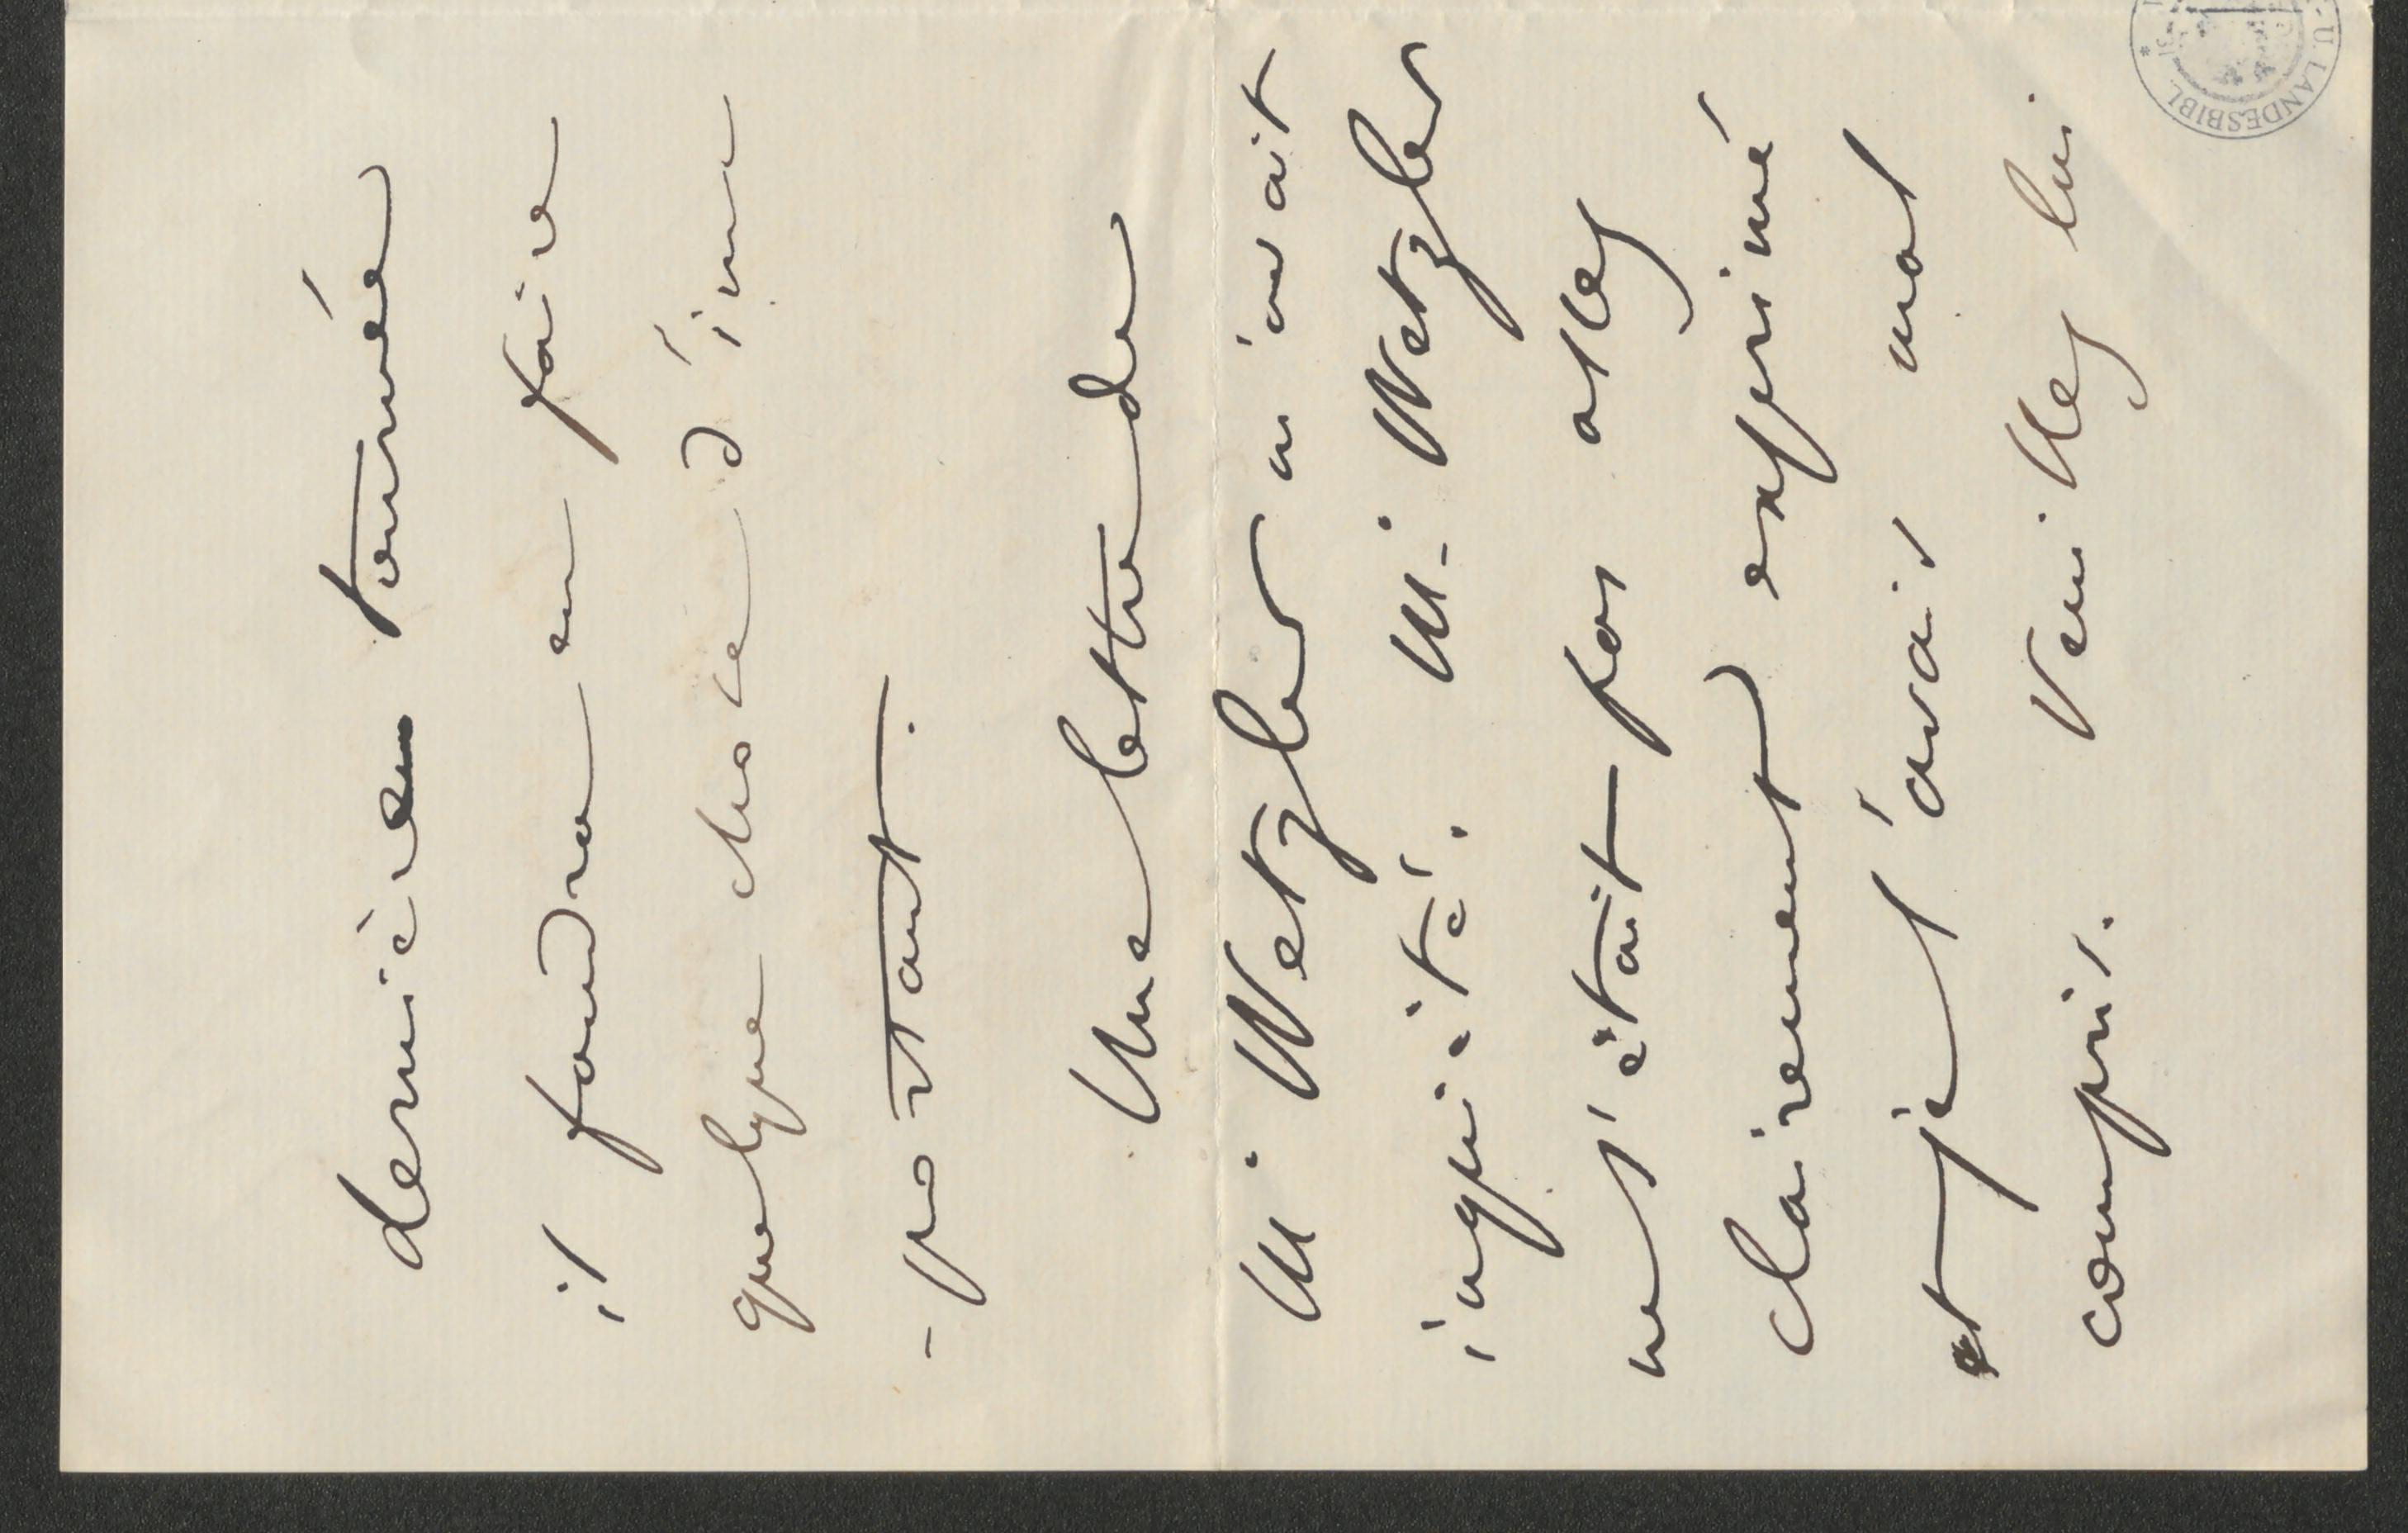 dernière tournée
il faudra en faire
quelque chose d'im
-portant.
Une lettre de
M. Wetzler m'avait
inquiété. M. Wetzler
ne s'était pas assez
clairement exprimé
et je l'avais mal
compris. Veuillez lui
U. LANDESBIBL.